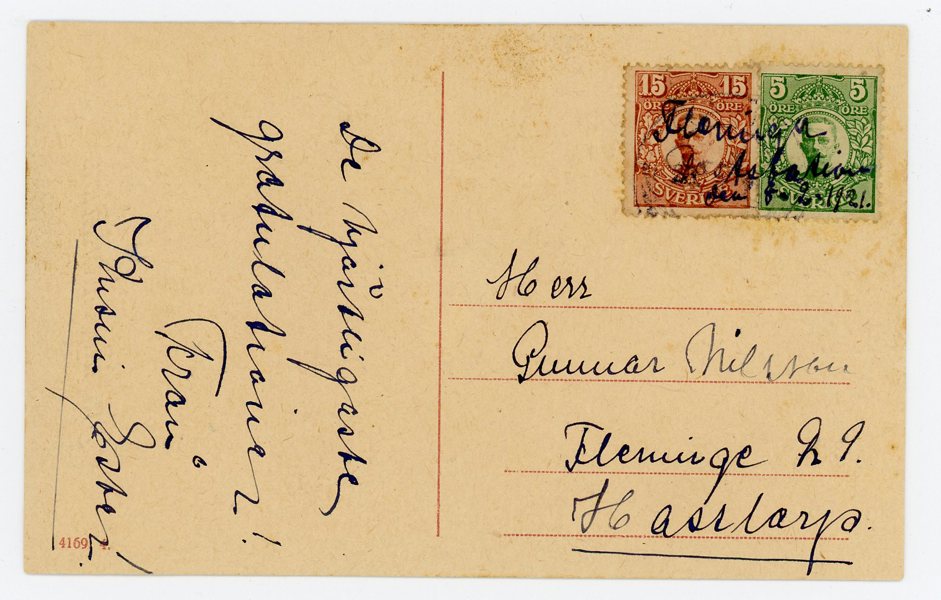 De hjärtligaste
gratulationer!
Från
Ester!
15 15
ÖRE ÖRE
SVERIGE
5 5
ÖRE ÖRE
SVERIGE
Fleninge
Poststation
den 8-2-1921.
Herr
Gunnar Nilsson
Fleninge
Hasslarp.
4169